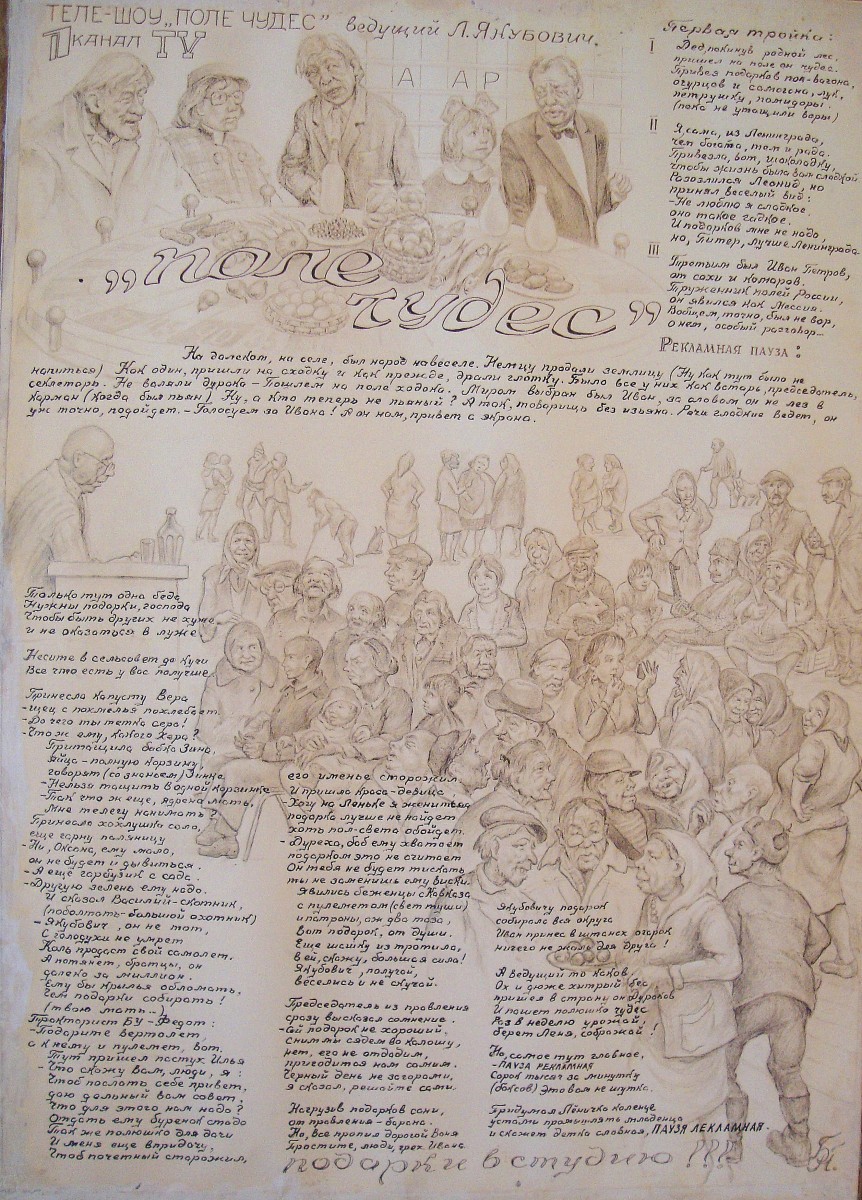 ТЕЛЕ-ШОУ „ПОЛЕ ЧУДЕС” ведущий Л.ЯКУБОВИЧ.
1 КАНАЛ TV
А АР
„поле
чудес”
Первая тройка:
I
Дед, покинув родной лес,
пришел на поле он чудес.
Привез подарков пол-вагона,
огурцов и самогона, лук,
петрушку, помидоры.
(пока не утащили воры)
II
Я сама, из Ленинграда,
чем богата, тем и рада.
Привезла, вот, шоколадку,
чтобы жизнь была вам сладкой
Разозлился Леонид, но
принял веселый вид:
-Не люблю я сладкое,
оно такое гадкое.
И подарков мне не надо,
но, Питер, лучше Ленинграда.
III
Третьим был Иван Петров,
от сохи и комаров.
Труженник полей России,
он явился как Мессия.
Вобщем, точно, был не вор,
о нет, особый разговор...
РЕКЛАМНАЯ ПАУЗА:
На далеком, на селе, был народ навеселе. Немцу продали землицу (Ну как тут было не
напиться) Как один, пришли на сходку и как прежде, драли глотку. Было все у них как встарь, председатель,
секретарь. Не валяли дурака - Пошлем на поле ходока. Миром выбран был Иван, за словом он не лез в
карман (когда был пьян) Ну, а кто теперь не пьяный? А так, товарищь без изьяна. Речи гладкие ведет, он
уж точно, подойдет. - Голосуем за Ивана! А он нам, привет с экрана.
Только тут одна беда
Нужны подарки, господа
Чтобы быть других не хуже
и не оказаться в луже.
Несите в сельсовет до кучи
Все что есть у вас получше.
Принесла капусту Вера
-щец с похмелья похлебает.
-До чего ты тетка сера!
-Что ж ему, какого Хера?
Притащила бабка Зина,
Яйца - полную корзину,
говорят (со знаньем) Зинке
-Нельзя тащить в одной корзинке
-Так что ж еще, ядрена мать,
Мне телегу нанимать?
Принесла хохлушка сало,
еще гарну паляницу
-Ни, Оксана, ему мало,
он не будет и дывиться.
-А еще гарбузик с саде
-Другую зелень ему надо.
И сказал Василий-скотник,
(поболтать-большой охотник)
-Якубович, он не тот,
С голодухи не умрет
Коль продаст свой самолет.
А потянет, братцы, он
далеко за миллион.
Ему бы крылья обломать,
Чем подарки собирать!
(твою мать...)
Тракторист БУ-Федот:
-Подарите Вертолет,
а к нему и пулемет, вот.
Тут пришел пастух Илья
-Что скажу Вам, люди, я:
Чтоб послать себе привет,
даю дельный вам совет,
Что для этого нам надо?
Отдать ему буренок стадо
Так же полюшко для дачи
И меня еще впридачу,
Чтоб почетный сторожил,
его именье сторожил.
И пришла краса-девица
-Хочу на Леньке я жениться
подарка лучше не найдет
хоть пол-света обойдет.
-Дуреха, баб ему хватает
подарком это не считает
Он тебя не будет тискать
ты не заменишь ему виски.
Явились беженцы с Кавказа
с пулеметом (свет туши)
и патроны, аж два таза,
Вот подарок, от души.
Еще шашку из тротила,
в ей, скажу, большая сила!
Якубович, получай,
веселись и не скучай.
Председатель из правления
сразу высказал сомнение.
-Сей подарок не хороший,
с ним мы сядем во калошу,
нет, его не отдадим,
пригодится нам самим.
Черный день не за горами,
я сказал, решайте сами.
Нагрузив подарков сани,
от правления - барана.
Но, все пропил дорогой Ваня
Простите, люди, грех Ивана.
Якубовичу подарок
собирала вся округа
Иван принес в штанах огарок
ничего не жаль для друга!
А Ведущий то каков.
Ох и дюже хитрый бес,
пришел в страну он Дураков
И пашет полюшко чудес
Раз в неделю урожай,
берет Леня, сображай!
Но, самое тут главное,
-ПАУЗА РЕКЛАМНАЯ
Сорок тысяч за минутку
(баксов) Это вам не шутка.
Придумал Лёничка коленце
устами промянлять младенца
и скажет детка славная, ПАУЗЯ ЛЕКЛАМНАЯ.
подарки в студию!!!